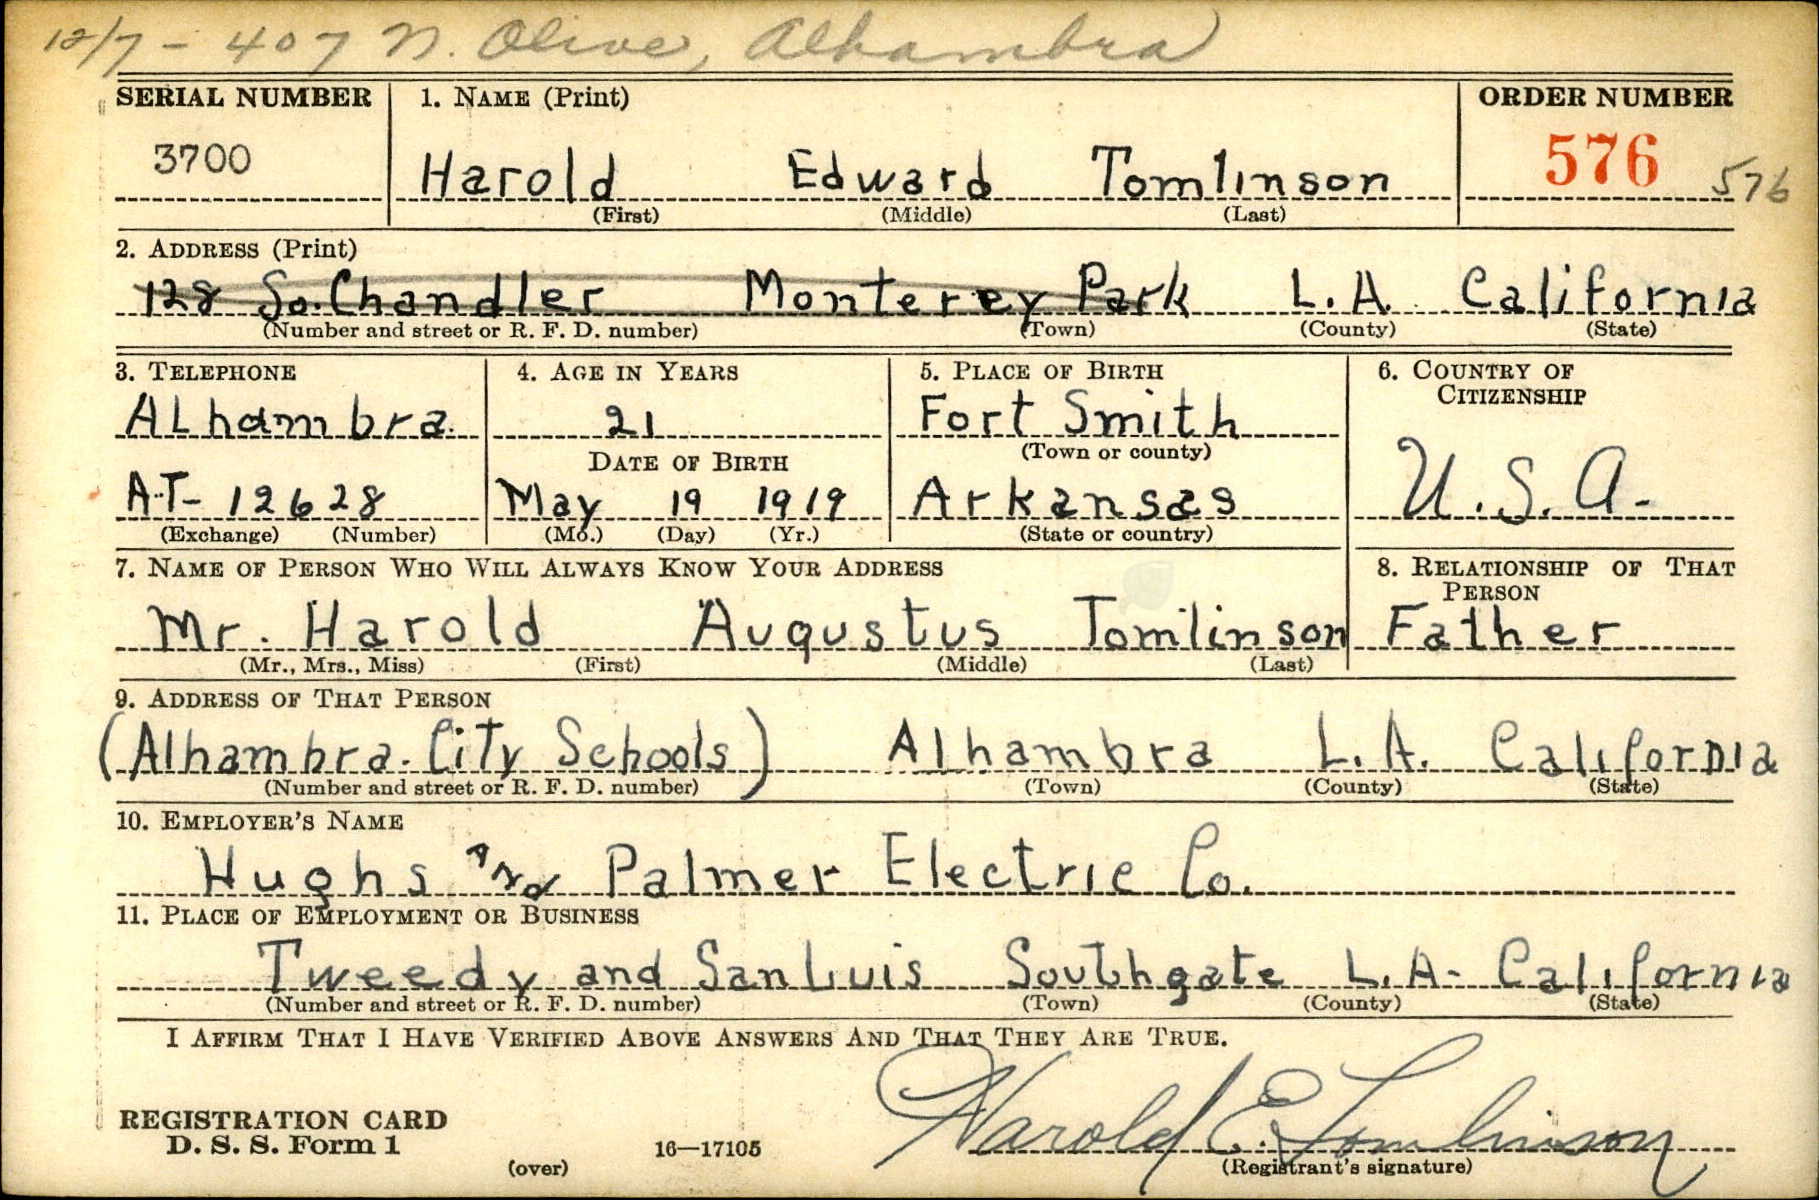 12/7 - 407 N. Olive, Alhambra
SERIAL NUMBER 1. NAME (Print) ORDER NUMBER
3700 Harold Edward Tomlinson 576 576
(First) (Middle) (Last)
2. ADDRESS (Print)
128 So. Chandler Monterey Park L.A. California
(Number and street or R. F. D. number) (Town) (County) (State)
3. TELEPHONE 4. AGE IN YEARS 5. PLACE OF BIRTH 6. COUNTRY OF CITIZENSHIP
ALhambra. 21 Fort Smith
DATE OF BIRTH (Town or county)
AT- 12628 May 19 1919 Arkansas U.S.A.
(Exchange) (Number) (Mo.) (Day) (Yr.) (State or country)
7. NAME OF PERSON WHO WILL ALWAYS KNOW YOUR ADDRESS 8. RELATIONSHIP OF THAT PERSON
Mr. Harold Augustus Tomlinson Father
(Mr., Mrs., Miss) (First) (Middle) (Last)
9. ADDRESS OF THAT PERSON
(Alhambra. City Schools) Alhambra L.A. California
(Number and street or R. F. D. number) (Town) (County) (State)
10. EMPLOYER'S NAME
Hughs and Palmer Electric Co.
11. PLACE OF EMPLOYMENT OR BUSINESS
Tweedy and San Luis Southgate L.A- California
(Number and street or R. F. D. number) (Town) (County) (State)
I AFFIRM THAT I HAVE VERIFIED ABOVE ANSWERS AND THAT THEY ARE TRUE.
REGISTRATION CARD
D. S. S. Form 1 16—17105 Harold E. Tomlinson
(over) (Registrant's signature)